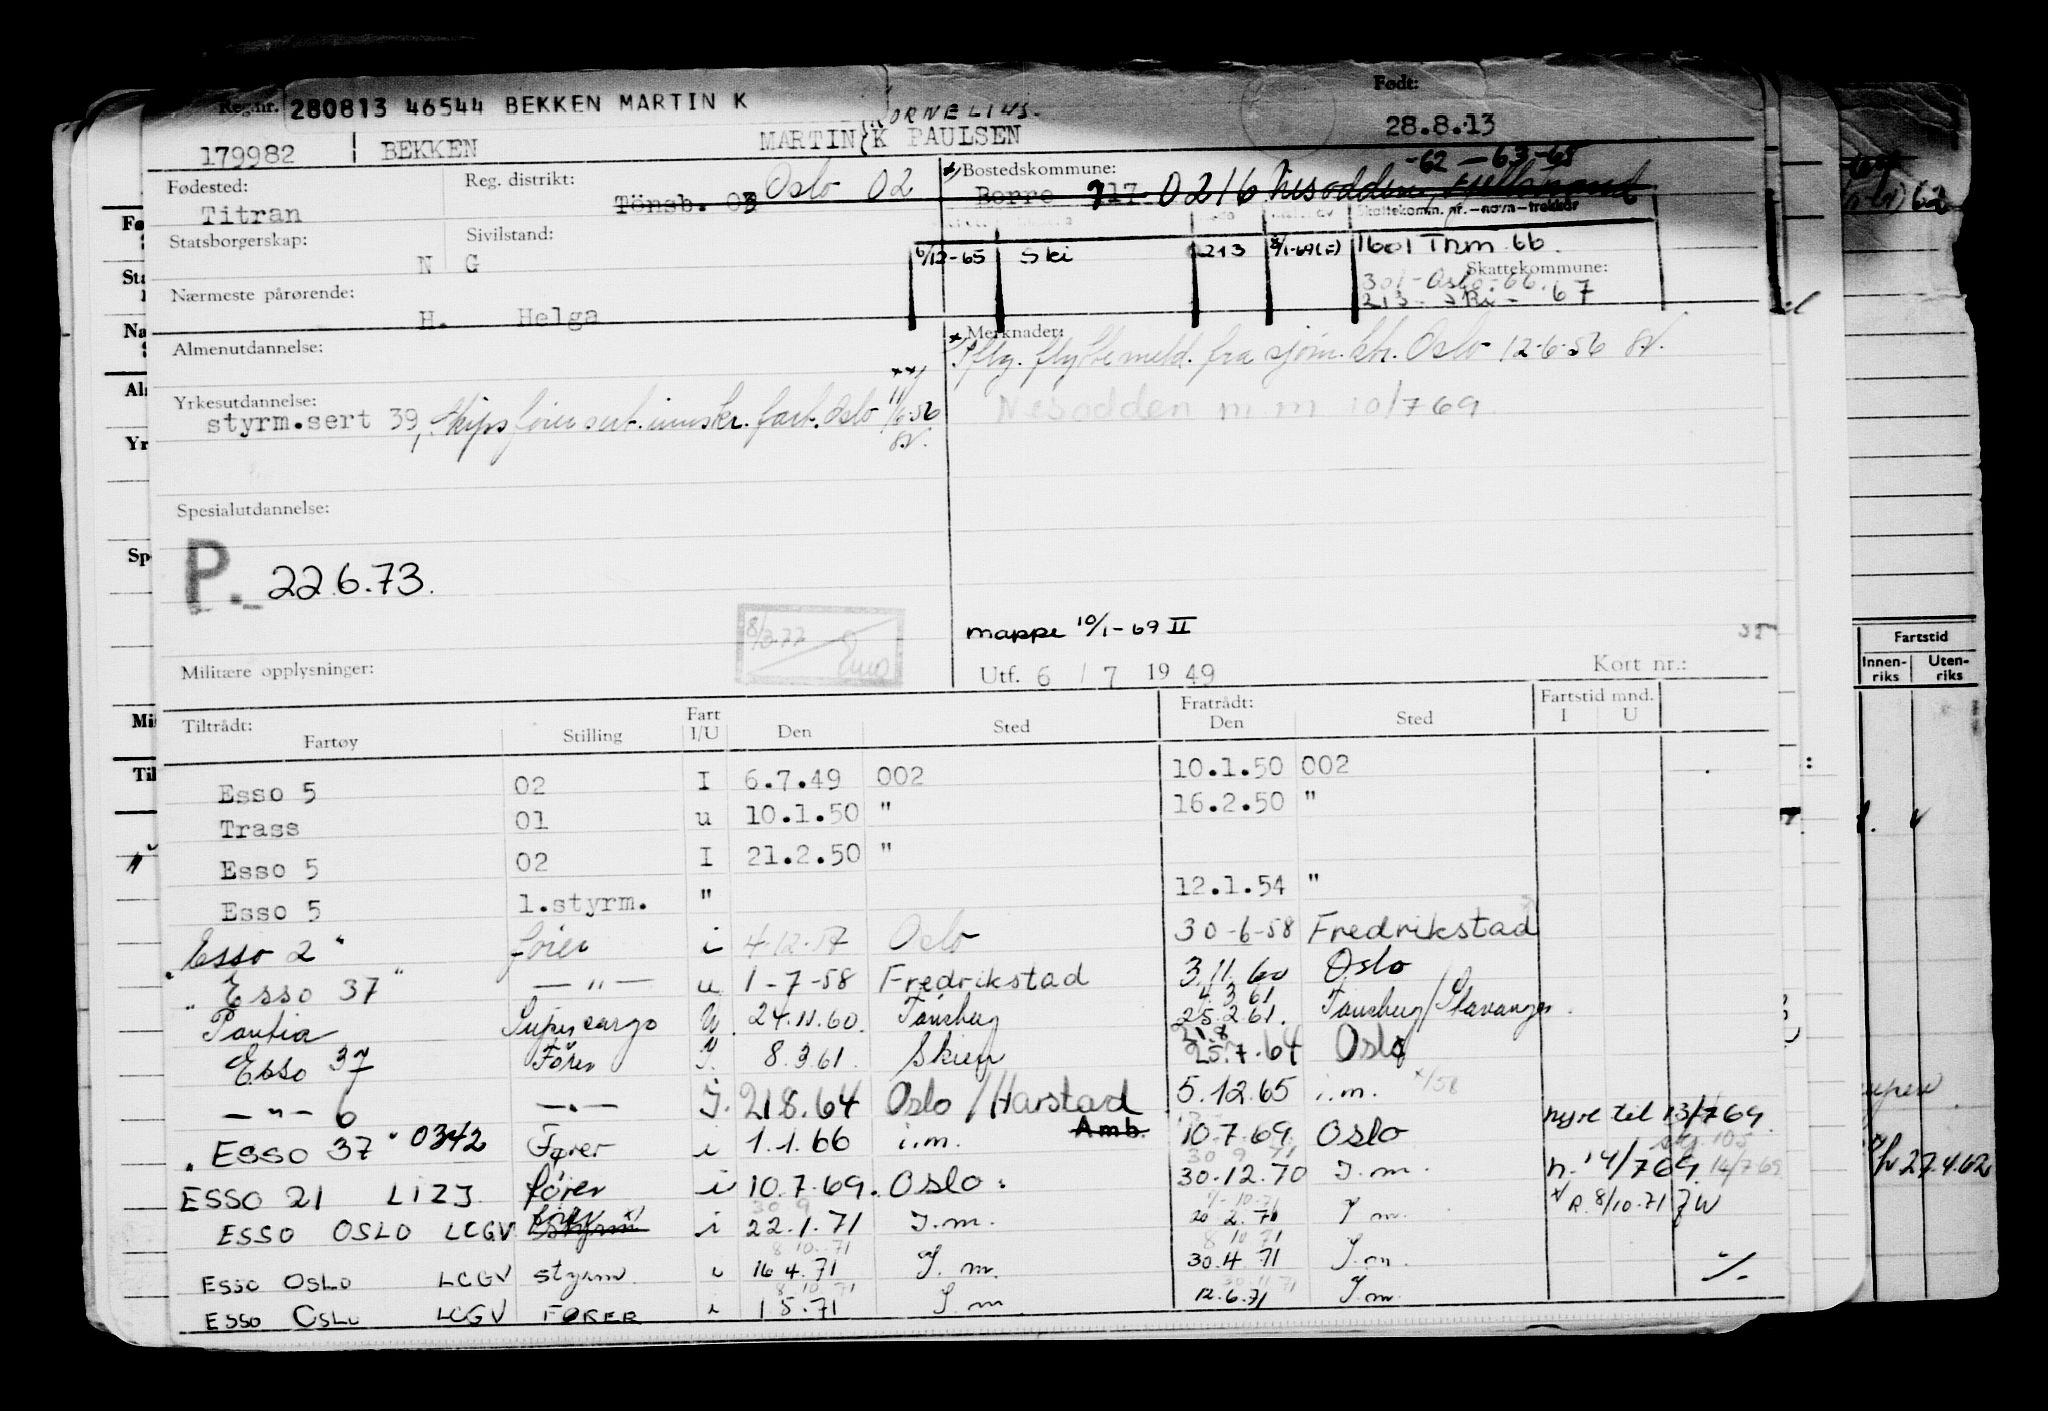 Reg.nr. 280813 46544 BEKKEN MARTIN K
Født:
ORNELIUS.
179982 BEKKEN MARTIN K PAULSEN 28.8.13
-62-63-65
Fødested: Reg. distrikt: Oslo 02 Bostedskommune:
Titran Tönsb. 03 Borre 717 0216 Nesodden,
Skattekomm. nr.-navn-trekkår
Statsborgerskap: Sivilstand:
N G
6/12-65 Ski 213 1601 Trhm 66.
Skattekommune:
301-Oslo-66.
213-Ski-67
Nærmeste pårørende:
H. Helga
Almenutdannelse:
Merknader:
flyttemeld. fra sjøm.ktr. Oslo 12-6-56
Nesodden m m 10/7 69.
Yrkesutdannelse:
styrm.sert 39, Skipsførersert. innskr. fart. Oslo 11/6-56
Spesialutdannelse:
P. 22.6.73.
8/2-77
mappe 10/1-69 II
Militære opplysninger:
Utf. 6 / 7 1949 Kort nr.:
Fartstid
Innenriks Utenriks
Tiltrådt: Fratrådt: Fartstid mnd.
Fartøy Stilling Fart I/U Den Sted Den Sted I U
Esso 5 02 I 6.7.49 002 10.1.50 002
Trass 01 u 10.1.50 " 16.2.50 "
Esso 5 02 I 21.2.50 "
Esso 5 1.styrm. " 12.1.54 "
"Esso 2" fører i 4-12-57 Oslo 30-6-58 Fredrikstad
"Esso 37" -"- u 1-7-58 Fredrikstad 3.11.60 Oslo
4.3.61
Supercargo U. 24.11.60. Tønsberg 25.2.61. Tønsberg/Stavanger.
21.8
Esso 37 Fører 8.3.61. Skien 25.7.64 Oslo
-"- 6 -"- I. 21.8.64 Oslo/Harstad 5.12.65 i.m.
Amb.
"Esso 37" 0342 Fører i 1.1.66 i.m. 10.7.69 Oslo hyre til 13/7 69.
ESSO 21 LIZJ fører i 10.7.69. Oslo. 30.12.70 I.m. h. 14/7 69. 14/7 69
ESSO OSLO LCGV styrm i 22.1.71 I.m. I m. R. 8/10-71
ESSO OSLO LCGV styrm. i 16.4.71 I.m. 30.4.71 I.m.
ESSO OSLO LCGV FØRER i 1.5.71 I.m. 12.6.71 I.m.
27.4.62